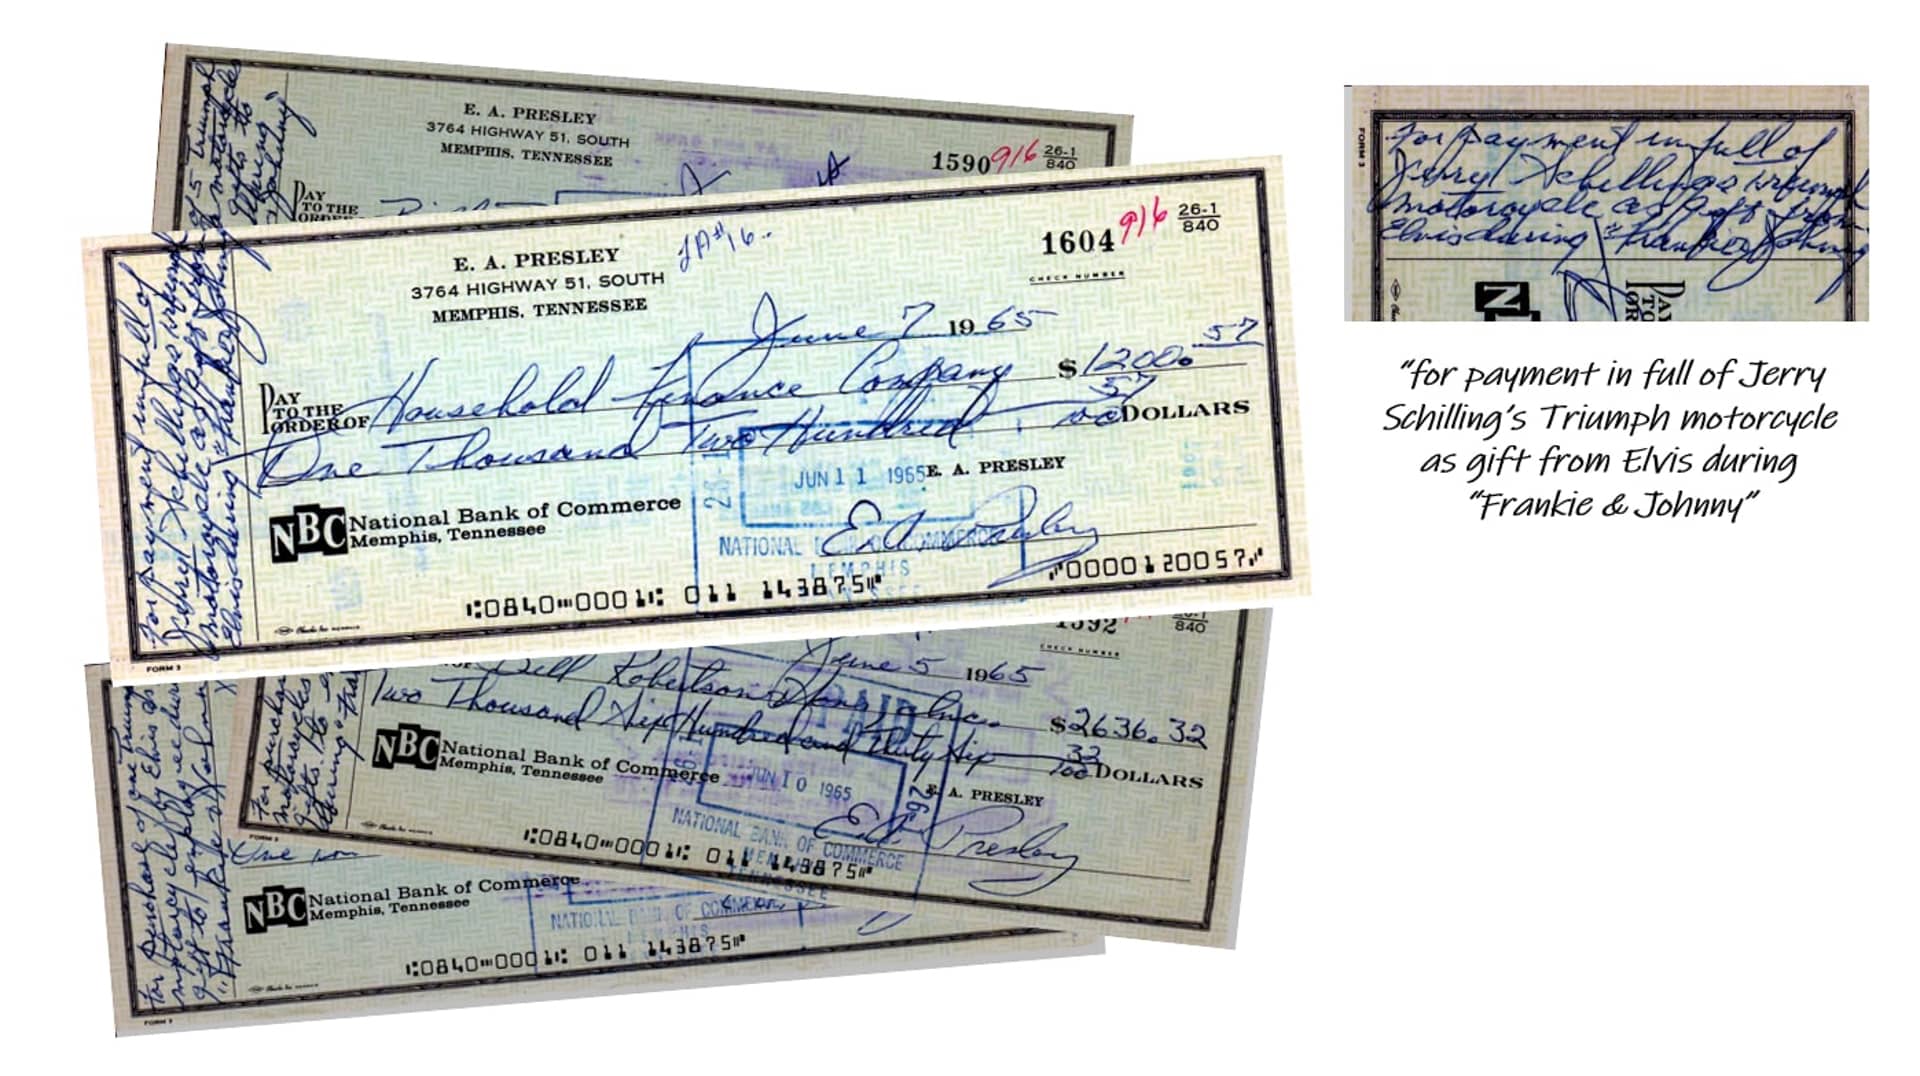 E. A. PRESLEY
3764 HIGHWAY 51, SOUTH
MEMPHIS, TENNESSEE
1590 916 26-1
840
PAY
TO THE
ORDER OF
5 Triumph
motorcycles
gifts to
during
Johnny"
E. A. PRESLEY
3764 HIGHWAY 51, SOUTH
MEMPHIS, TENNESSEE
1604 916 26-1
840
CHECK NUMBER
June 7 1965
PAY
TO THE
ORDER OF Household Finance Company $1200.57
One Thousand Two Hundred 57/100 DOLLARS
JUN 11 1965 E. A. PRESLEY
NBC National Bank of Commerce
Memphis, Tennessee
E. A. Presley
NATIONAL BANK OF COMMERCE
MEMPHIS
TENNESSEE
⑆0840⑉0001⑆ 011 143875⑈ ⑇0000120057⑇
FORM 3
for payment in full of
Jerry Schilling's Triumph
motorcycle as gift from
Elvis during "Frankie & Johnny
1592
840
CHECK NUMBER
June 5 1965
Bill Robertson & Sons, Inc. $2636.32
Two Thousand Six Hundred and Thirty Six 32/100 DOLLARS
PAID
NBC National Bank of Commerce
Memphis, Tennessee
JUN 10 1965
E. A. PRESLEY
E. A. Presley
NATIONAL BANK OF COMMERCE
MEMPHIS
TENNESSEE
⑆0840⑉0001⑆ 011 143875⑈
for
motorcycles
gifts to
during
FORM 3
One
NBC National Bank of Commerce
Memphis, Tennessee
NATIONAL BANK OF COMMERCE
MEMPHIS
⑆0840⑉0001⑆ 011 143875⑈
for purchase of one
motorcycle by Elvis as
gift to employee during
"Frankie & Johnny"
FORM 3
FORM 3
for payment in full of
Jerry Schilling's Triumph
motorcycle as gift from
Elvis during "Frankie & Johnny
"for payment in full of Jerry
Schilling's Triumph motorcycle
as gift from Elvis during
"Frankie & Johnny"